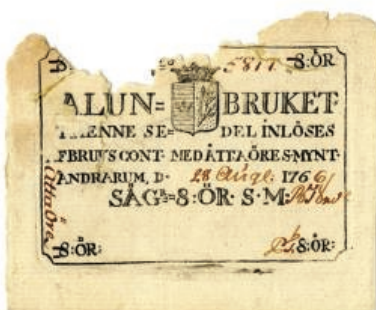 5811 8:ÖR
ALUN= BRUKET
DENNE SE= DEL INLÖSES
BRUKS CONT· MED ÅTTA ÖRE S·MYNT·
ANDRARUM, D· 28 Augl: 1766
SÅG 8:ÖR· S·M·
8:ÖR: 8:ÖR:
Åtta Öre